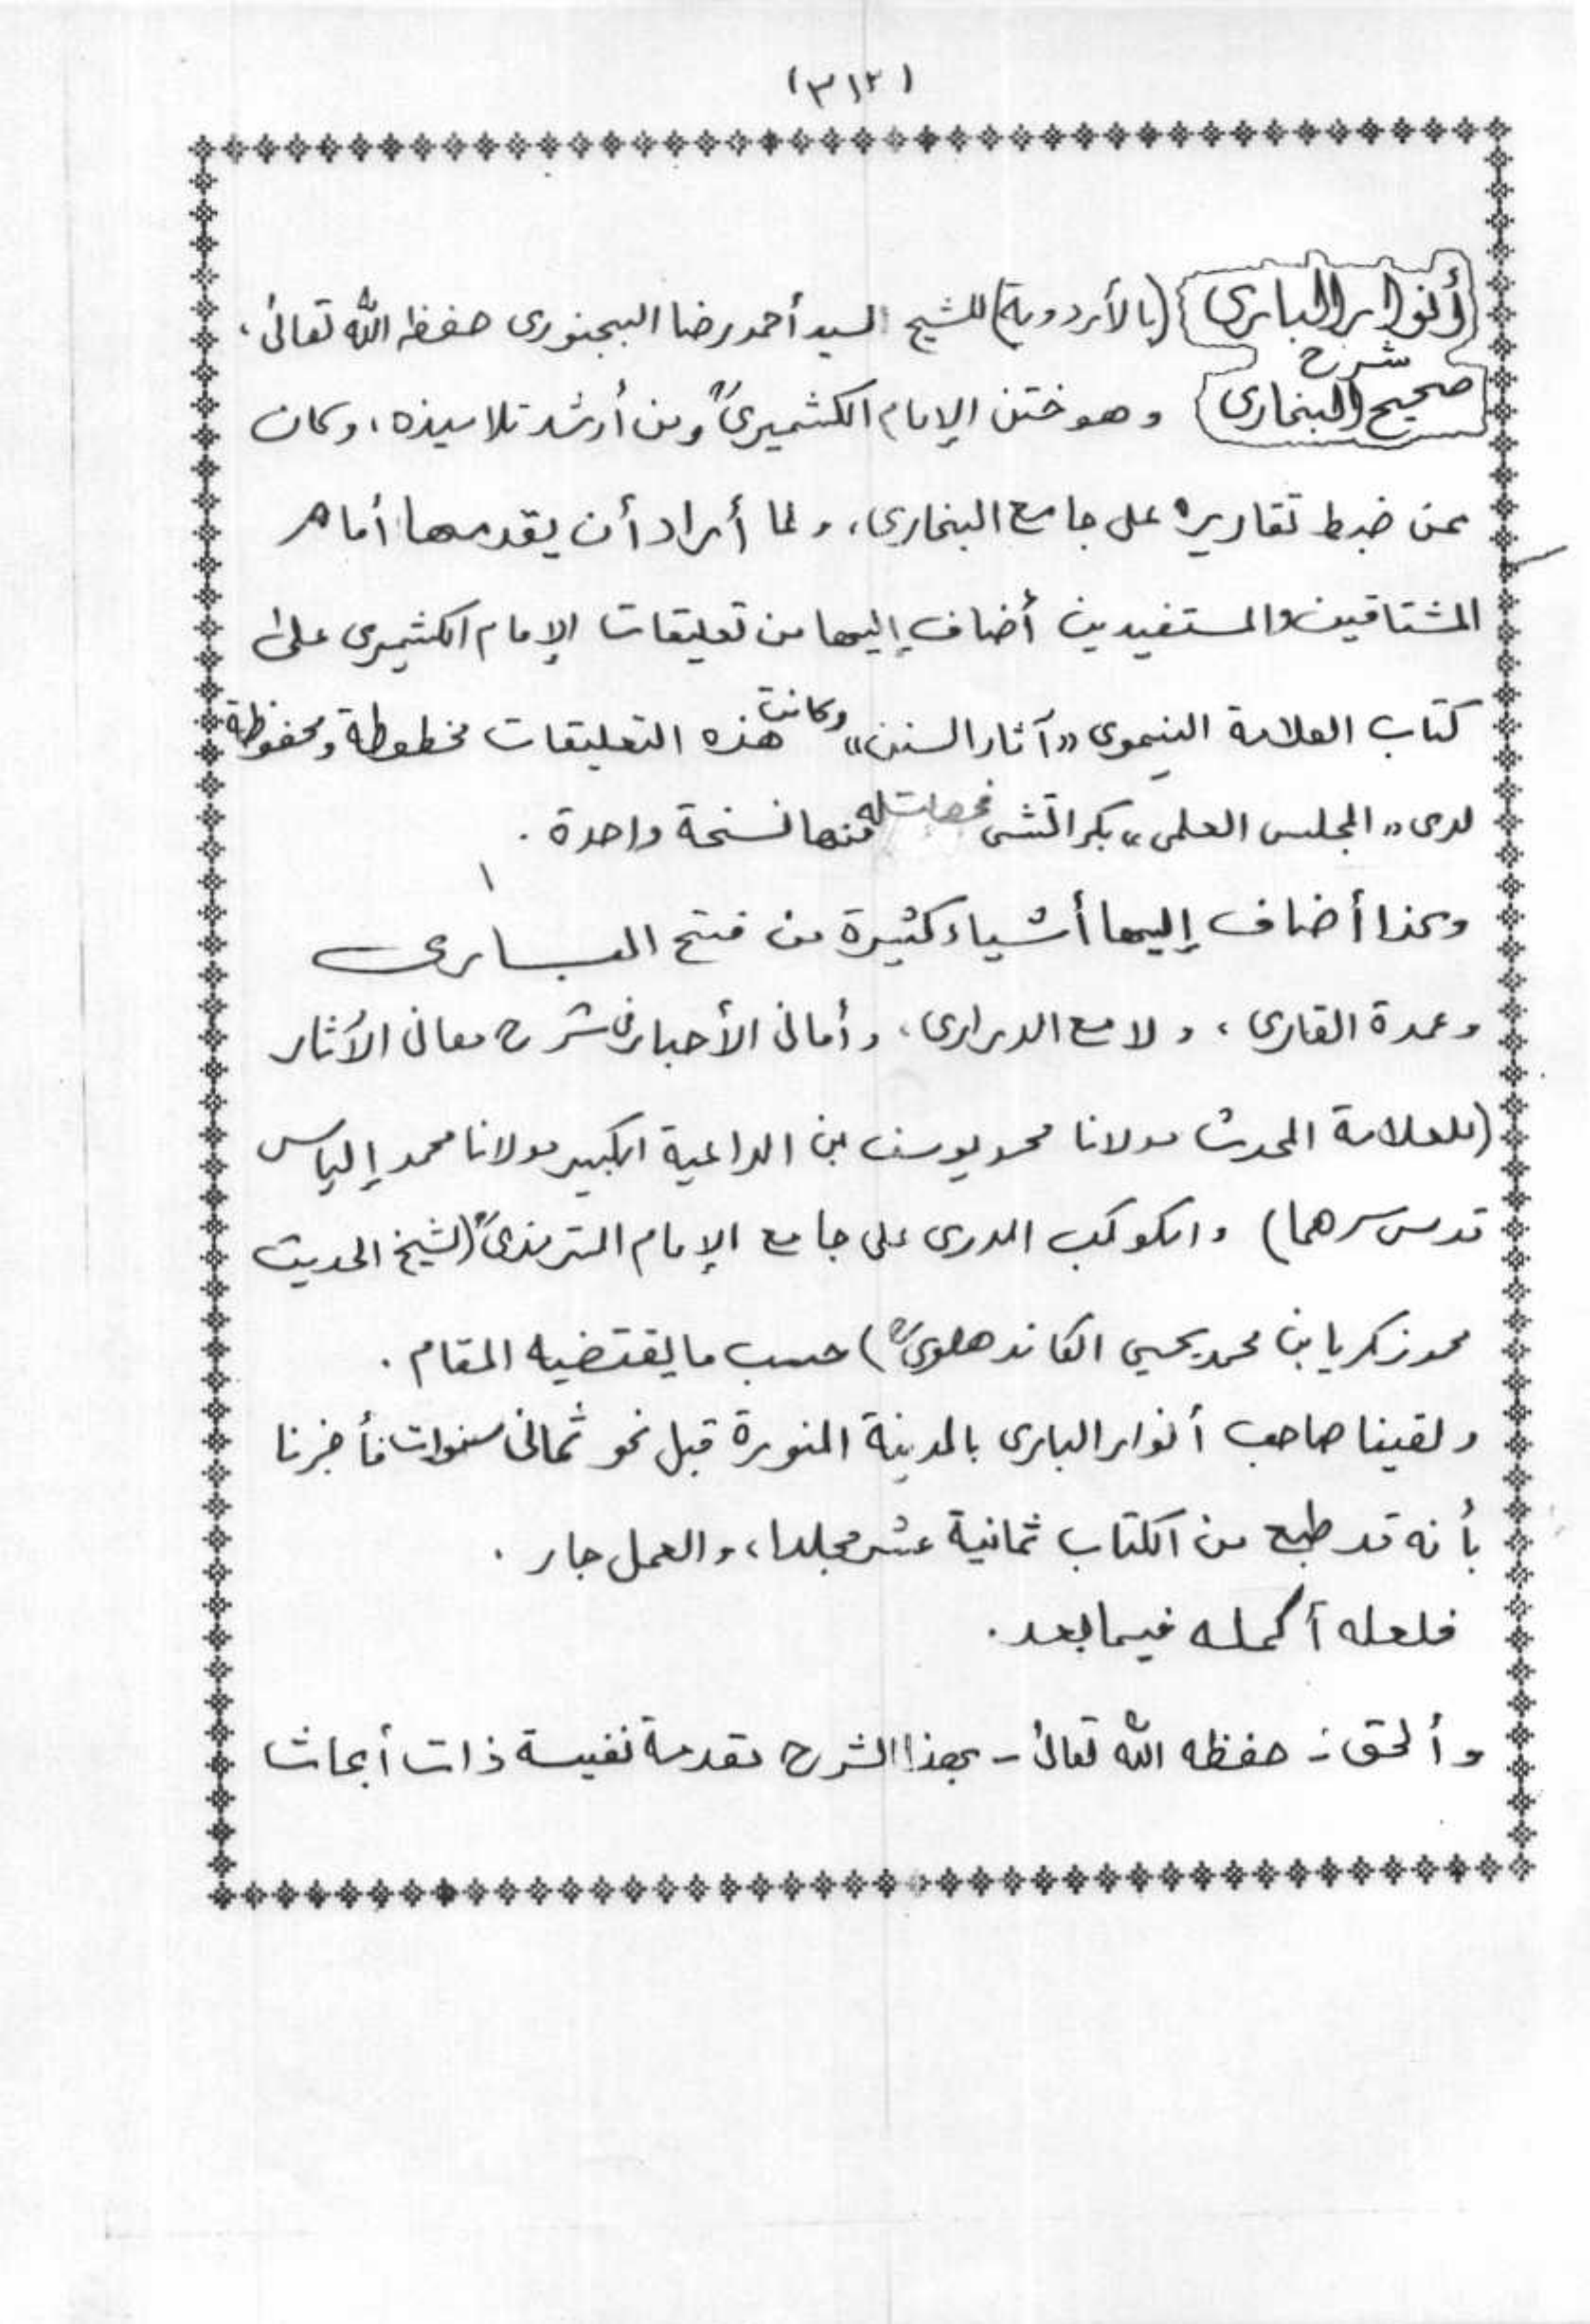 (٣١٢)
أنوار الباري (بالأردوية) للشيخ السيد أحمد رضا البجنوري حفظه الله تعالى،
شرح
صحيح البخاري وهو ختن الإمام الكشميريؒ ومن أرشد تلاميذه، وكان
ممن ضبط تقاريره على جامع البخاري، ولما أراد أن يقدمها أمام
المشتاقين والمستفيدين أضاف إليها من تعليقات الإمام الكشميري على
كتاب العلامة النيموي «آثار السنن» وكانت هذه التعليقات مخطوطة ومحفوظة
لدى «المجلس العلمي» بكراتشي فحصلت له منها نسخة واحدة .
وكذا أضاف إليها أشياء كثيرة من فتح البـــاري
وعمدة القاري، ولامع الدراري، وأماني الأحبار في شرح معاني الآثار
(للعلامة المحدث مولانا محمد يوسف بن الداعية الكبير مولانا محمد إلياس
قدس سرهما) والكوكب الدري على جامع الإمام الترمذيؒ (لشيخ الحديث
محمد زكريا بن محمد يحيى الكاندهلويؒ) حسب ما يقتضيه المقام .
ولقينا صاحب أنوار الباري بالمدينة المنورة قبل نحو ثماني سنوات فأخبرنا
بأنه قد طبع من الكتاب ثمانية عشر مجلدا، والعمل جار .
فلعله أكمله فيما بعد .
وألحق - حفظه الله تعالى - بهذا الشرح مقدمة نفيسة ذات أبحاث